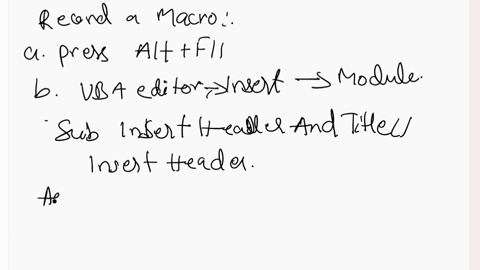 Record a Macro:.
a. press Alt + F11
b. VBA editor → Insert → Module.
Sub Insert Header And Title()
Invest Header.
A